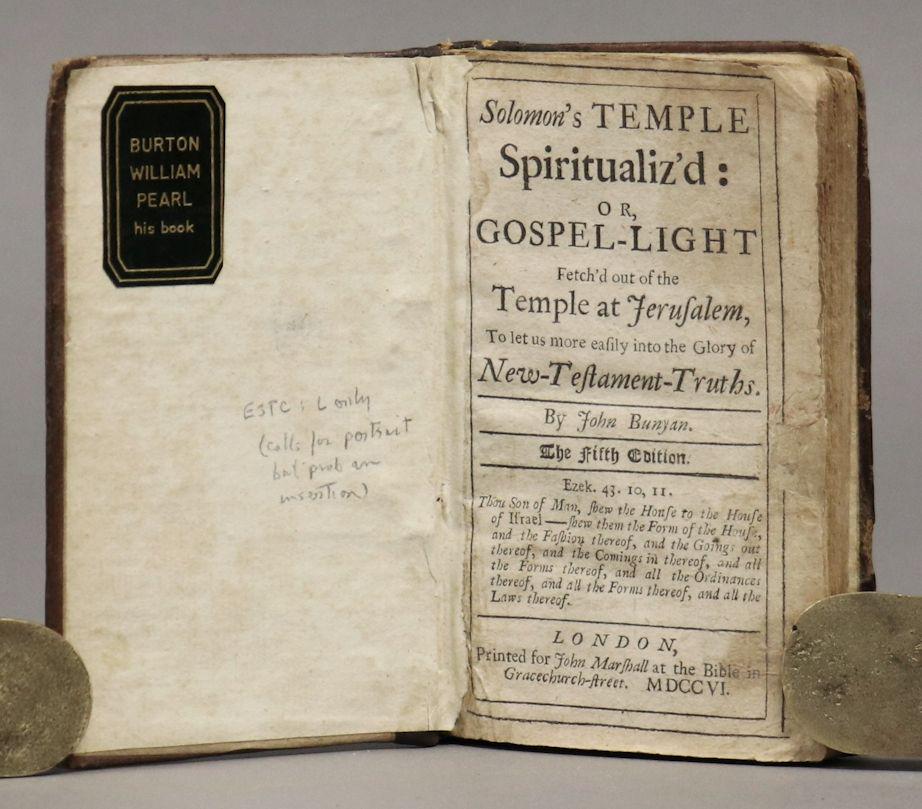 BURTON
WILLIAM
PEARL
his book
ESTC: L only
(calls for portrait
but prob an
insertion)
Solomon's TEMPLE
Spiritualiz'd:
OR,
GOSPEL-LIGHT
Fetch'd out of the
Temple at Jeruſalem,
To let us more eaſily into the Glory of
New-Teſtament-Truths.
By John Bunyan.
The Fifth Edition.
Ezek. 43. 10, 11.
Thou Son of Man, ſhew the Houſe to the Houſe
of Iſrael — ſhew them the Form of the Houſe,
and the Faſhion thereof, and the Goings out
thereof, and the Comings in thereof, and all
the Forms thereof, and all the Ordinances
thereof, and all the Forms thereof, and all the
Laws thereof.
LONDON,
Printed for John Marſhall at the Bible in
Gracechurch-ſtreet. MDCCVI.